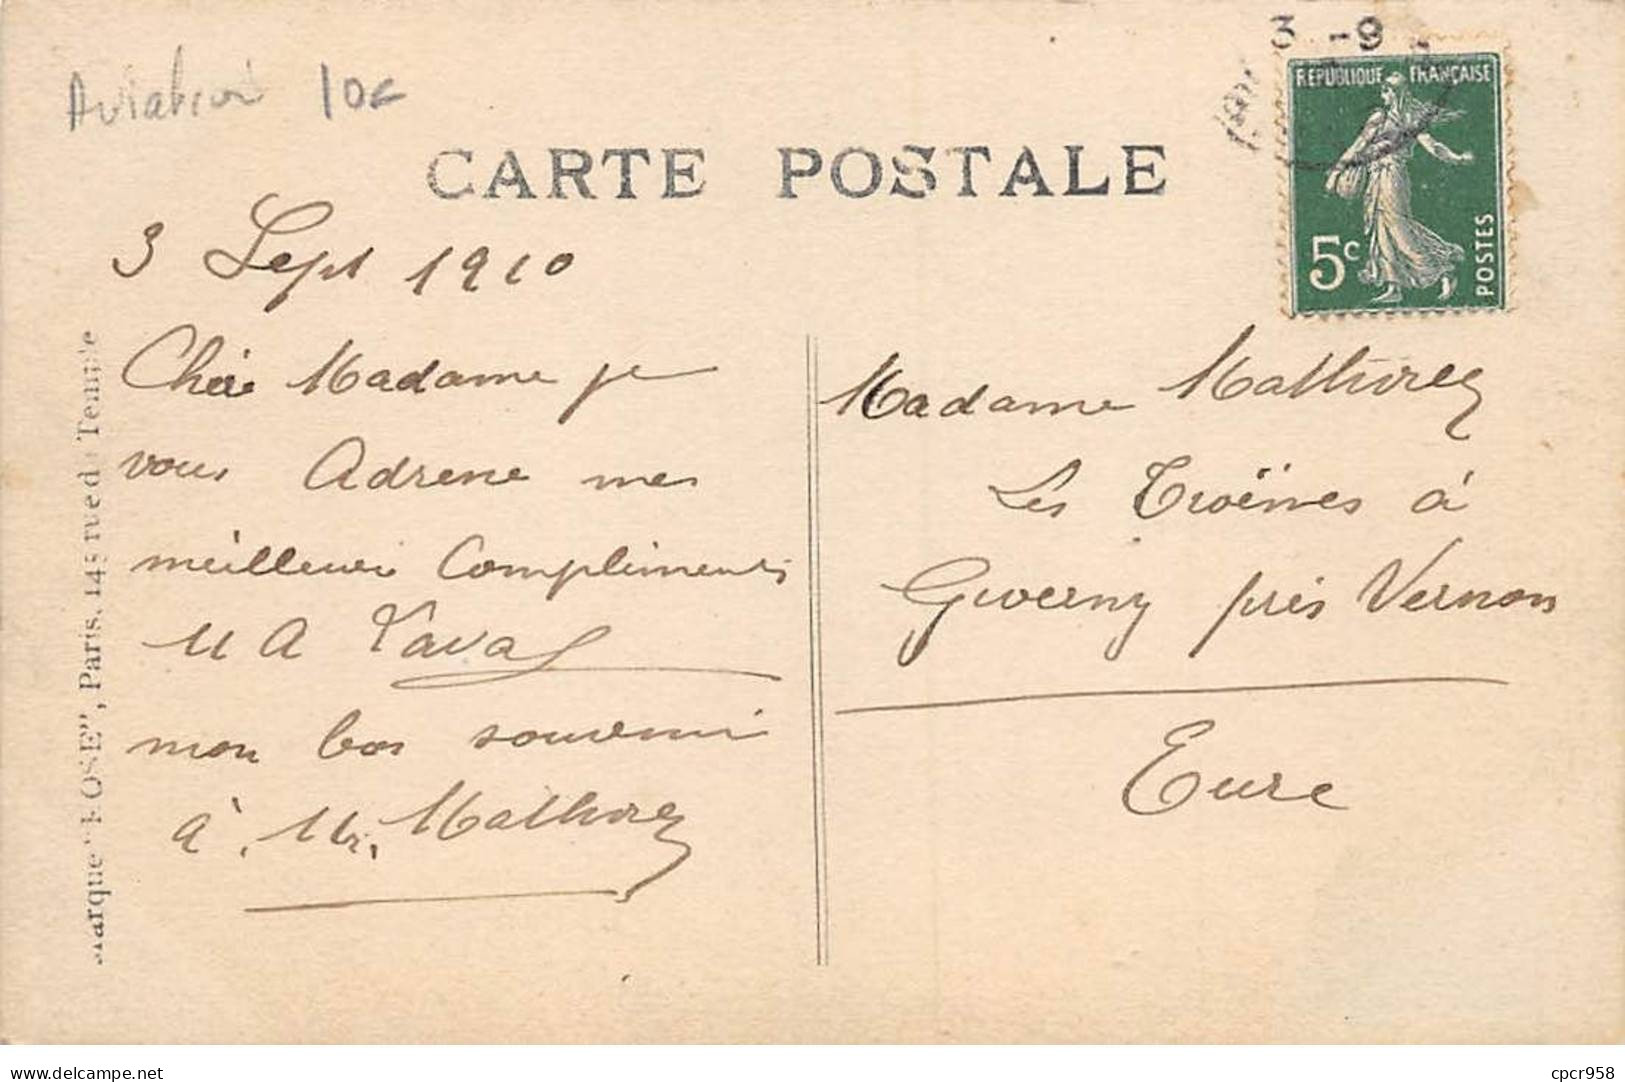 Aviation 10€
3 -9
CARTE POSTALE
REPUBLIQUE FRANÇAISE
5c
POSTES
3 Sept 1910
Chère Madame je
vous Adresse mes
meilleurs Compliments
mon bon souvenir
à Mr. Mathorez
Marque "ROSE", Paris, 145 rue du Temple
Madame Mathorez
Les Troënes à
Giverny près Vernon
Eure
delcampe.net
cpcr958